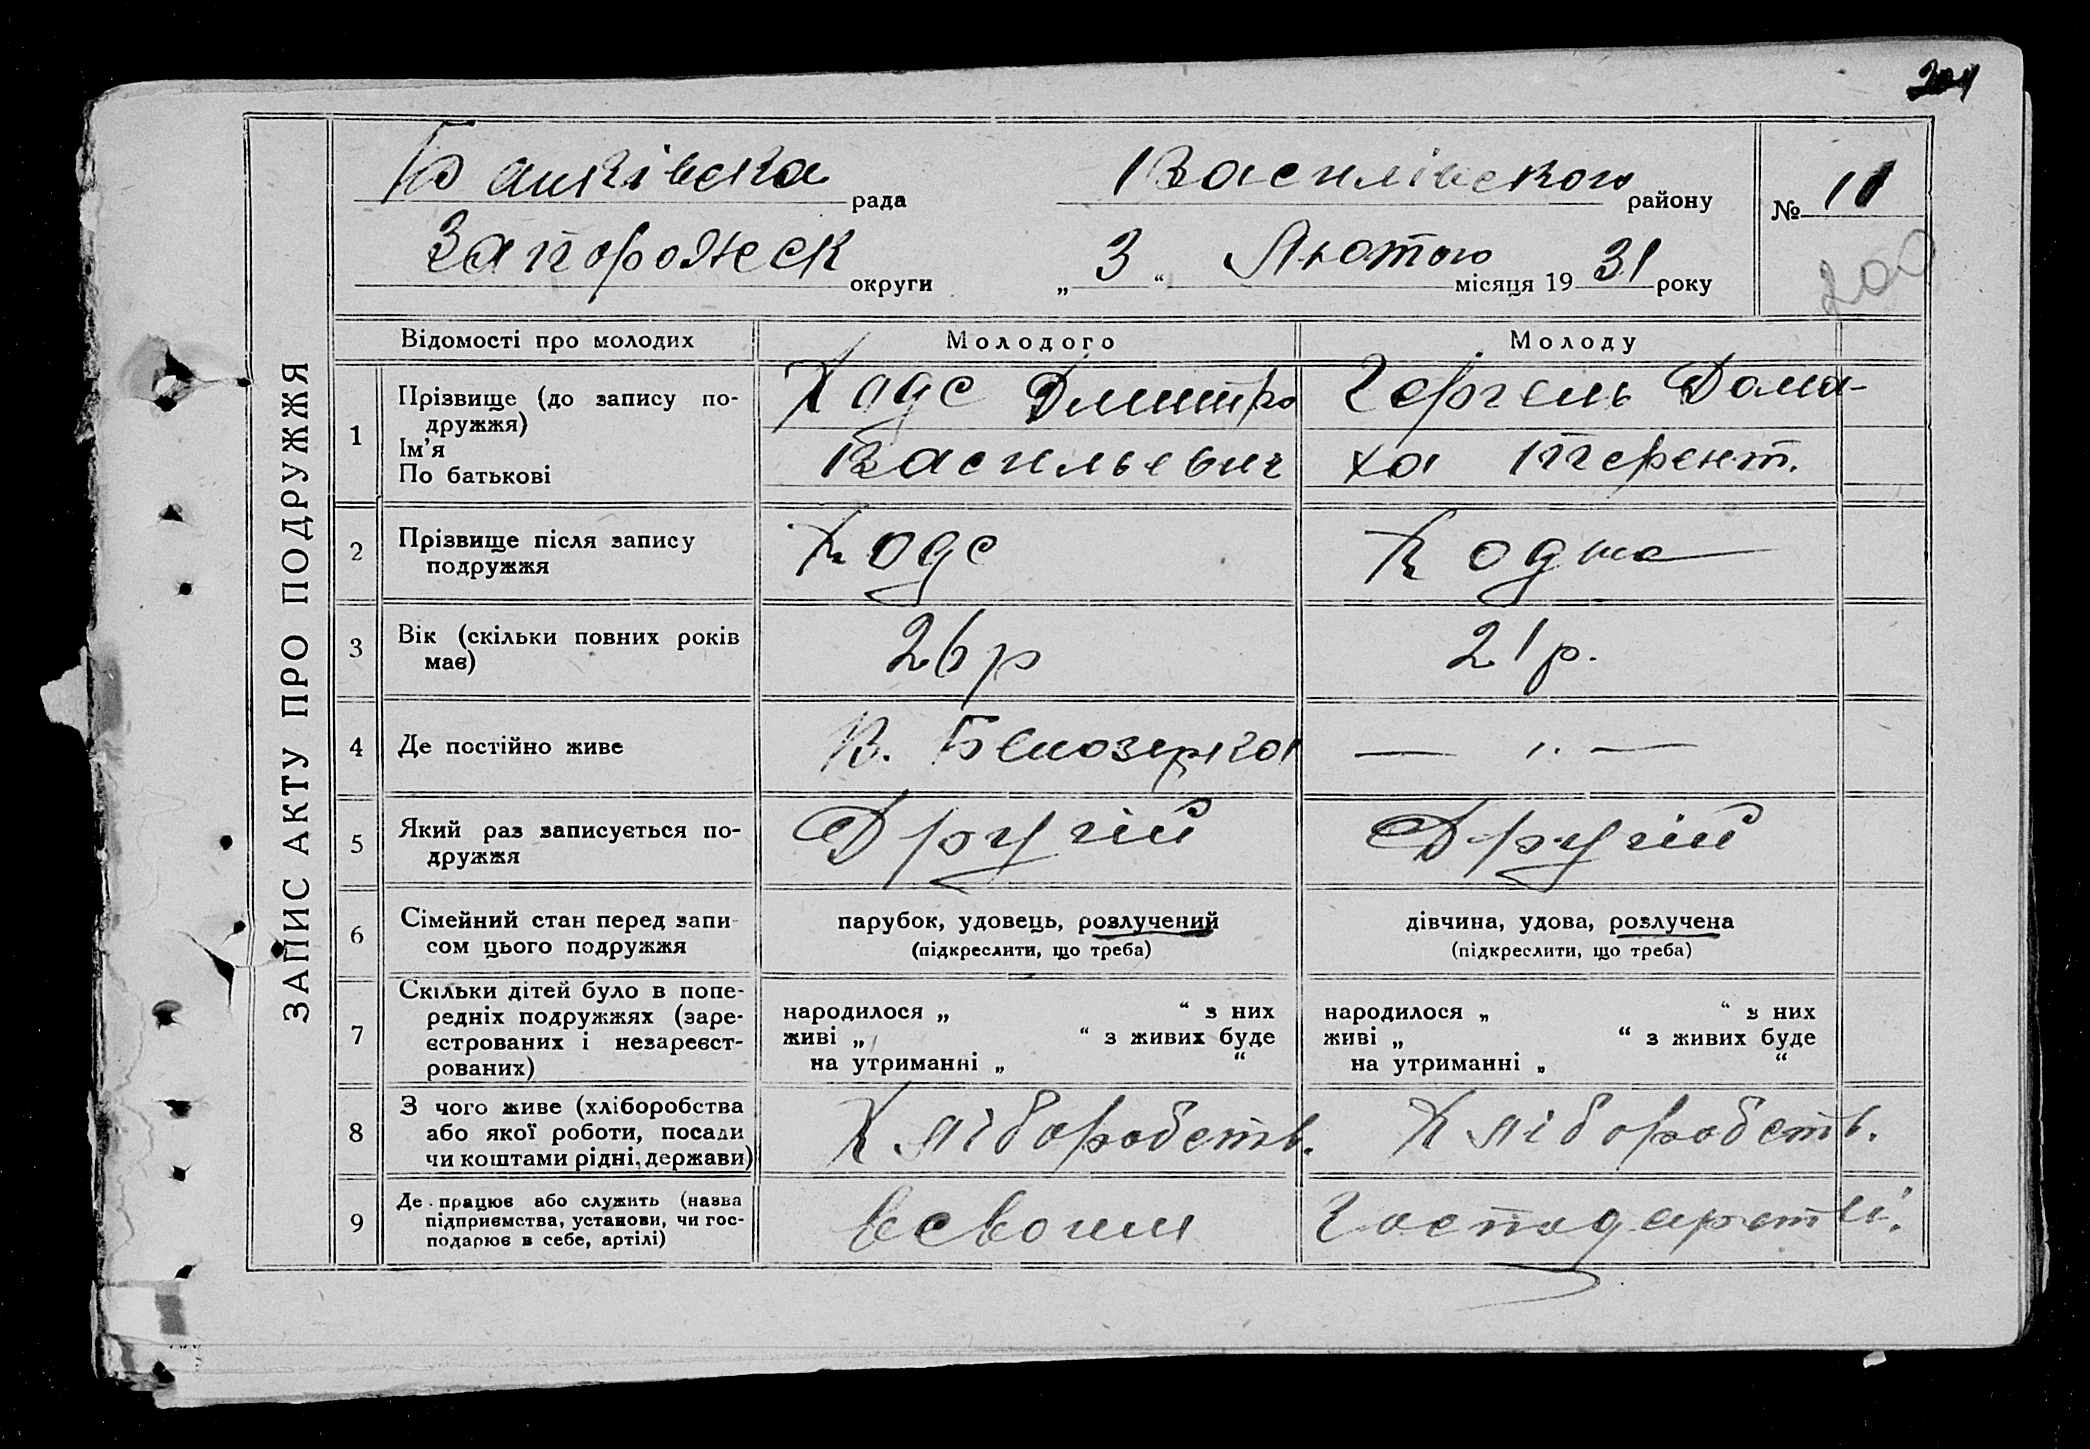 204
Банківска рада Василівского району № 11
Запорожск округи „ 3 “ Лютого місяця 19 31 року
200
ЗАПИС АКТУ ПРО ПОДРУЖЖЯ
Відомості про молодих Молодого Молоду
1 Прізвище (до запису по-
дружжя)
Ім’я
По батькові
Ходс Дмитро
Васильевич
Гергель Дома-
ха Терент.
2 Прізвище після запису
подружжя
Ходс
3 Вік (скільки повних років
має)
26 р
21 р.
4 Де постійно живе
В. Белозерка
— ". —
5 Який раз записується по-
дружжя
Другій
Другій
6 Сімейний стан перед запи-
сом цього подружжя
парубок, удовець, розлучений
(підкреслити, що треба)
дівчина, удова, розлучена
(підкреслити, що треба)
7 Скільки дітей було в попе-
редніх подружжях (заре-
єстрованих і незареєст-
рованих)
народилося „ “ з них
живі „ “ з живих буде
на утриманні „ “
народилося „ “ з них
живі „ “ з живих буде
на утриманні „ “
8 З чого живе (хліборобства
або якої роботи, посади
чи коштами рідні, держави)
Хліборобств.
Хліборобств.
9 Де працює або служить (назва
підприємства, установи, чи гос-
подарює в себе, артілі)
всвоим
Господарстві.